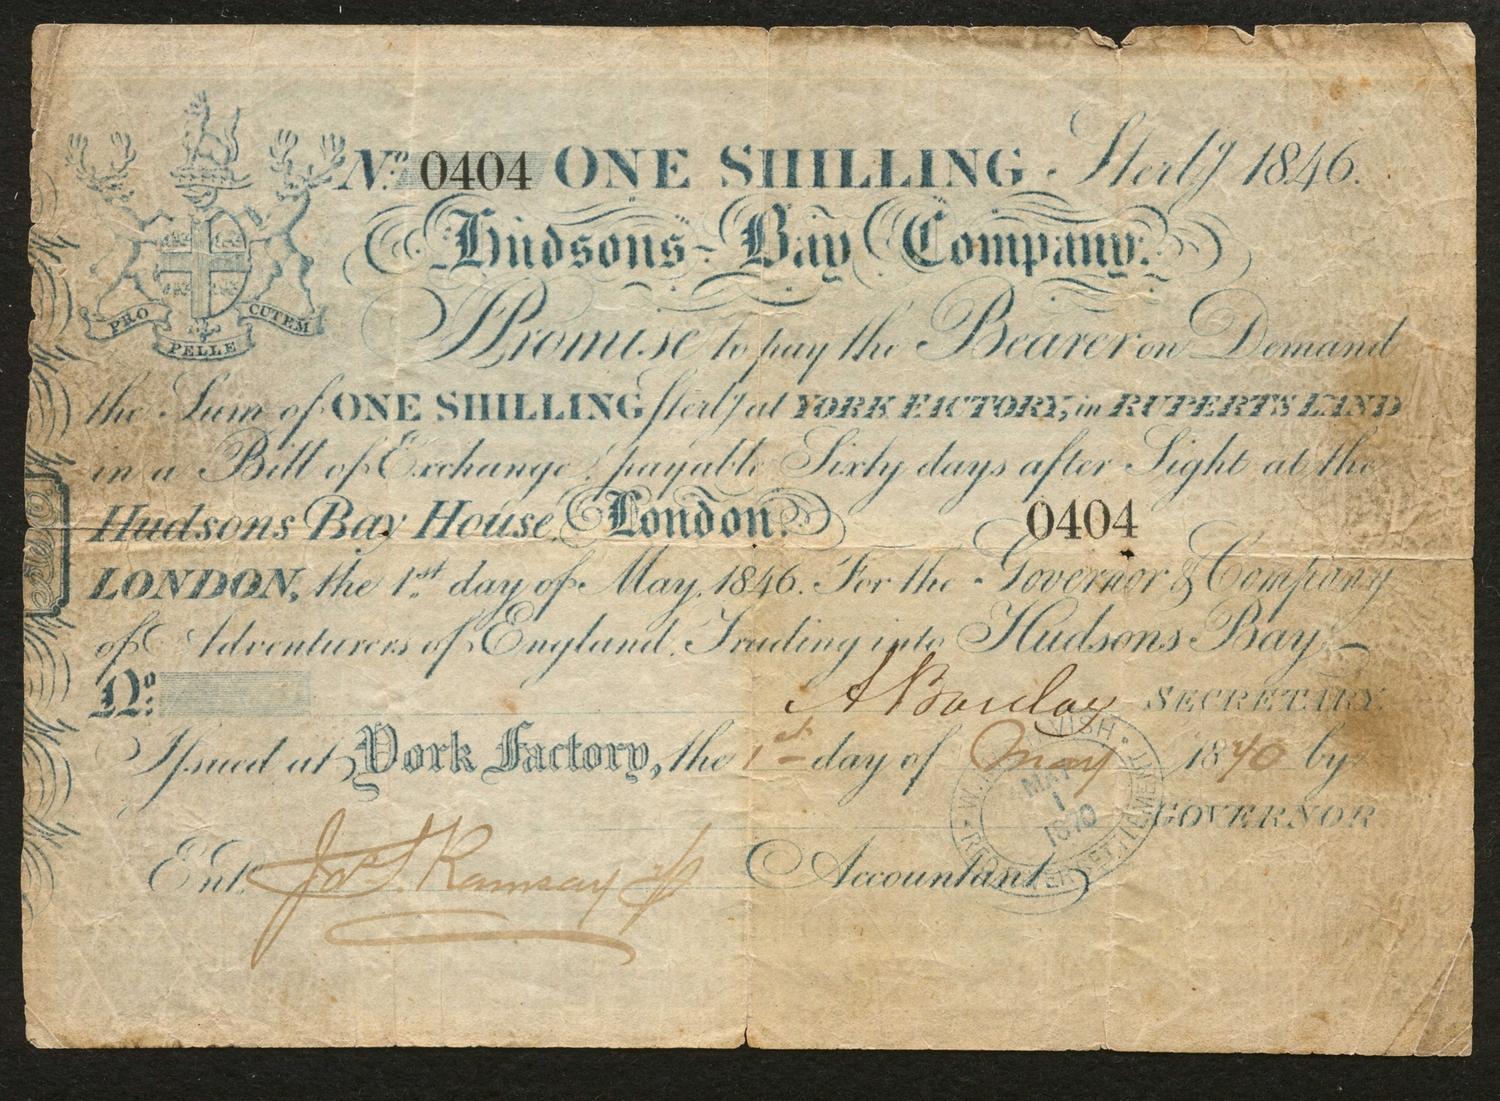 No. 0404 ONE SHILLING Sterlg 1846.
Hudsons-Bay Company.
PRO PELLE CUTEM
I Promise to pay the Bearer on Demand
the Sum of ONE SHILLING Sterlg at YORK FACTORY, in RUPERTS LAND
in a Bill of Exchange, payable Sixty days after Sight at the
Hudsons Bay House, London.
0404
LONDON, the 1st day of May, 1846. For the Governor & Company
of Adventurers of England, Trading into Hudsons Bay,
No.
A Barclay SECRETARY.
Issued at York Factory, the 1st day of May 1870 by
GOVERNOR
Ent. Jas. S. Ramsay Accountant
MAY
1
1870